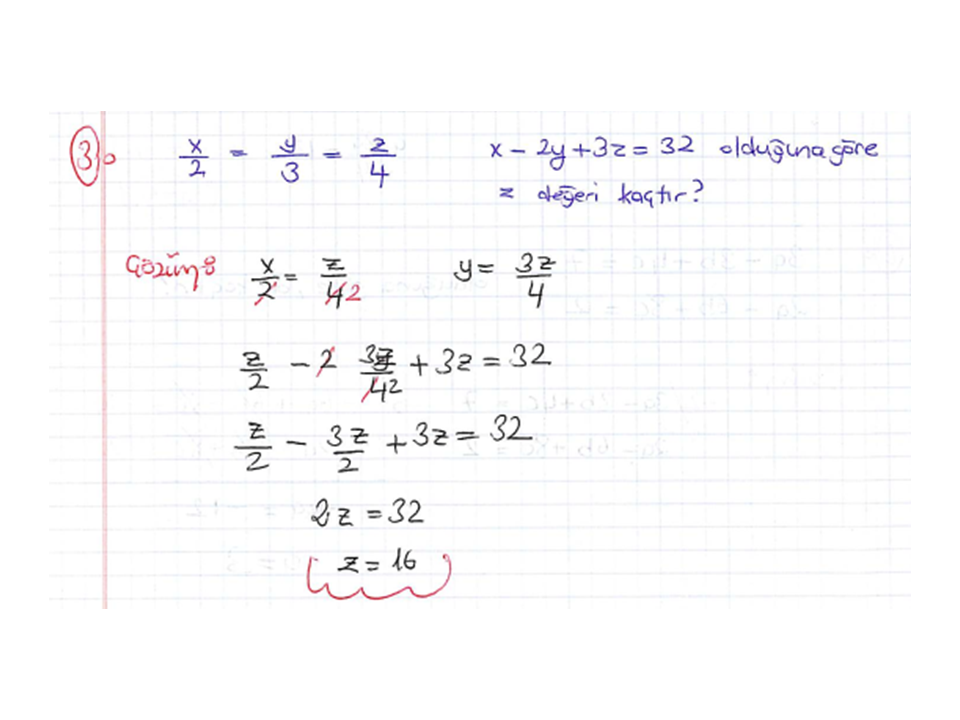 3. x/2 = y/3 = z/4 x - 2y + 3z = 32 olduğuna göre
z değeri kaçtır?
Çözüm: x/2 = z/4 2 y = 3z/4
z/2 - 2 3z/4 2 + 3z = 32
z/2 - 3z/2 + 3z = 32
2z = 32
z = 16